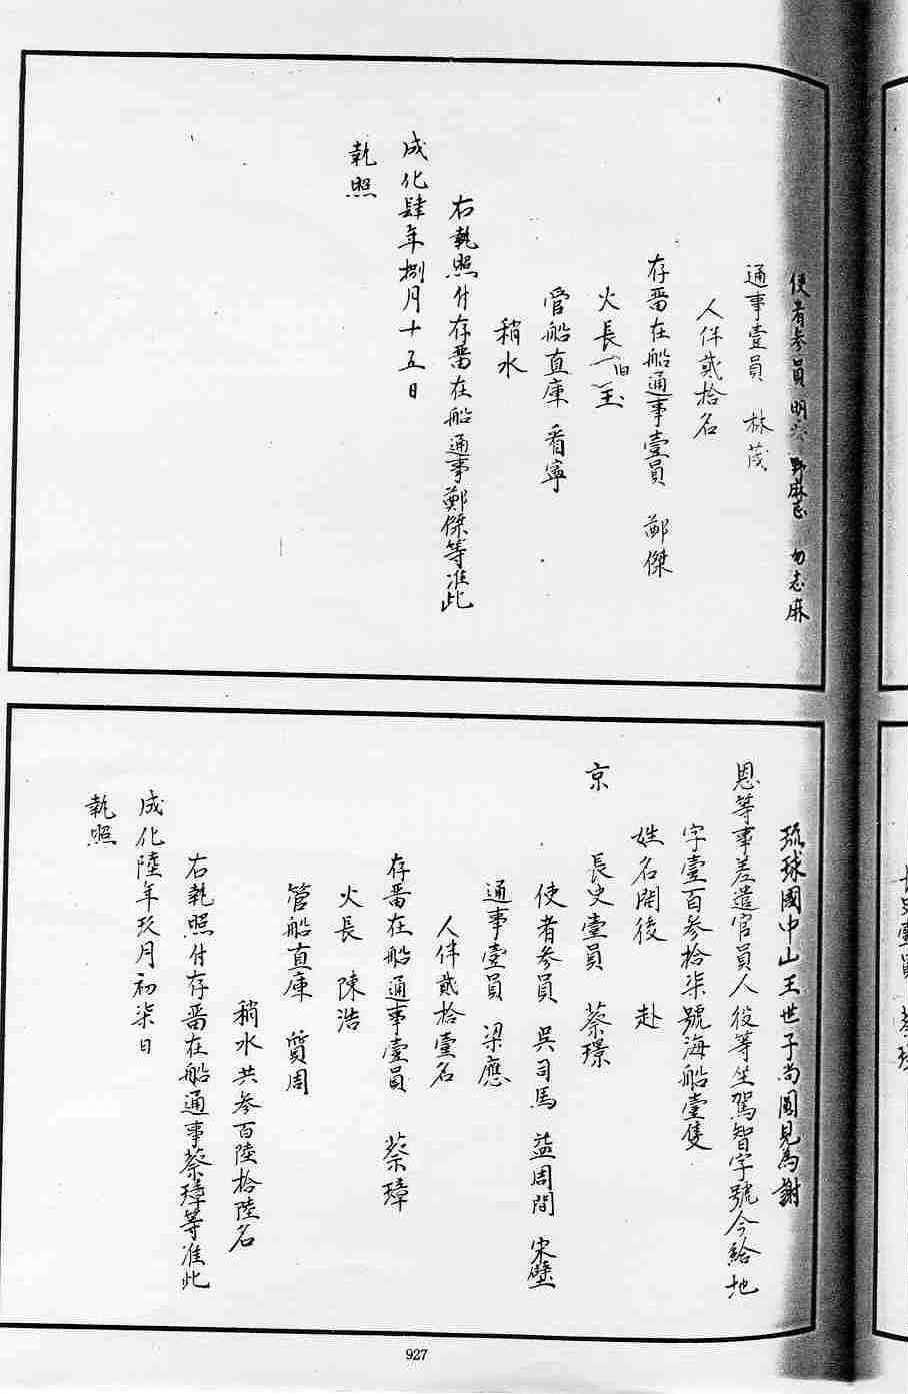 使者參員 明 野麻志 勿志麻
通事壹員 林茂
人伴貳拾名
存畱在船通事壹員 鄭傑
火長
管船直庫 看寧
稍水
右執照付存畱在船通事鄭傑等准此
成化肆年捌月十五日
執照
琉球國中山王世子尚圓見為謝
恩等事差遣官員人役等坐駕智字號今給地
字壹百參拾柒號海船壹隻
姓名開後 赴
京
長史壹員 蔡璟
使者參員 吳司馬 益周間 宋壁
通事壹員 梁應
人伴貳拾壹名
存畱在船通事壹員 蔡璋
火長 陳浩
管船直庫 質周
稍水共參百陸拾陸名
右執照付存畱在船通事蔡璋等准此
成化陸年玖月初柒日
執照
927